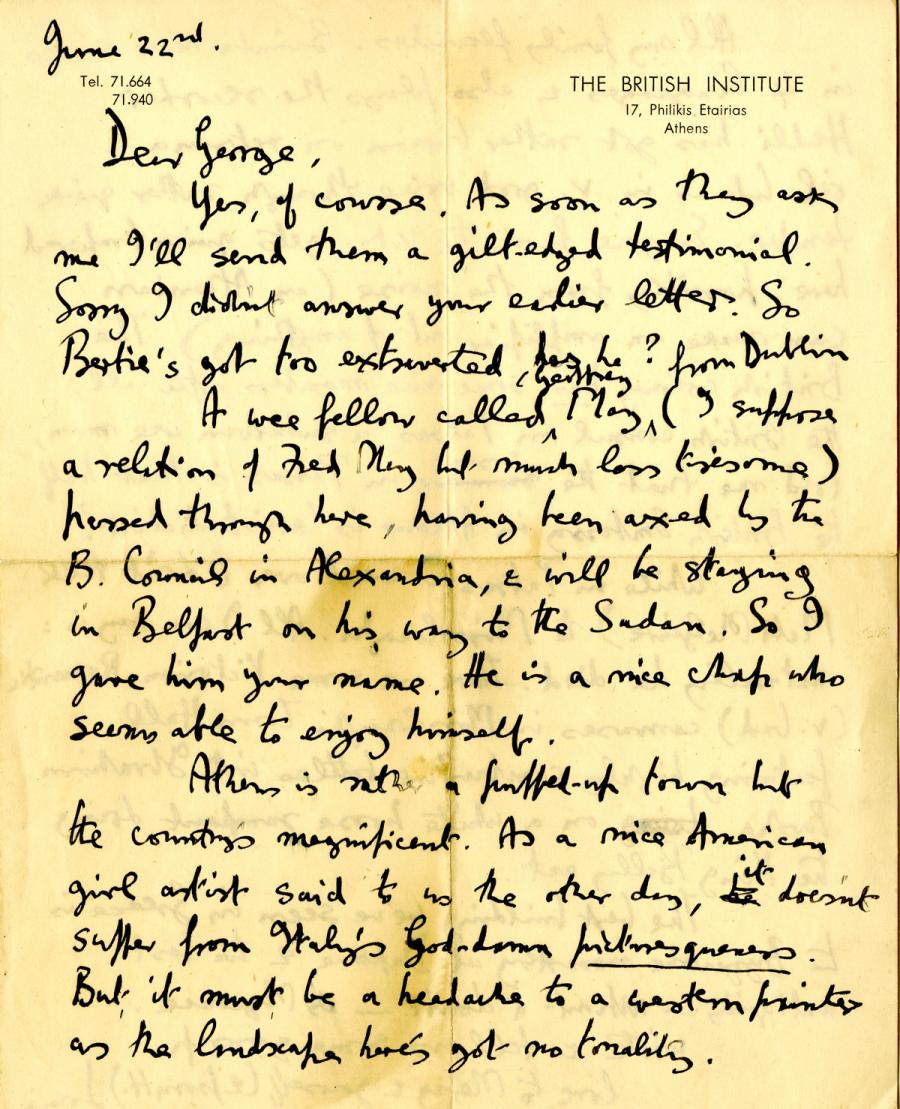 June 22nd.
Tel. 71.664
71.940
THE BRITISH INSTITUTE
17, Philikis Etairias
Athens
Dear George,
Yes, of course. As soon as they ask
me I'll send them a gilt-edged testimonial.
Sorry I didn't answer your earlier letter. So
Bertie's got too extraverted, has he?
A wee fellow called Geoffrey May from Dublin (I suppose
a relation of Fred May but much less tiresome)
passed through here, having been axed by the
B. Council in Alexandria, & will be staying
in Belfast on his way to the Sudan. So I
gave him your name. He is a nice chap who
seems able to enjoy himself.
Athens is rather a puffed-up town but
the country's magnificent. As a nice American
girl artist said to us the other day, it doesn't
suffer from Italy's God-damn picturesqueness.
But it must be a headache to a western painter
as the landscape here's got no tonality.